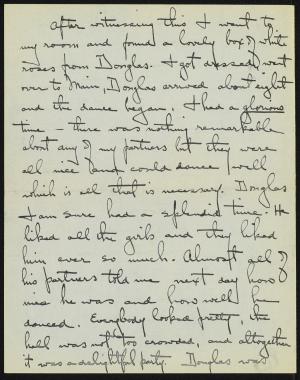 After witnessing this I went to
my room and found a lovely box of white
roses from Douglas. I got dressed, went
over to Main, Douglas arrived about eight
and the dance began. I had a glorious
time - there was nothing remarkable
about any of my partners but they were
all nice and could dance well
which is all that is necessary. Douglas
I am sure had a splendid time. He
liked all the girls and they liked
him ever so much. Almost all of
his partners told me next day how
nice he was and how well he
danced. Everybody looked pretty, the
hall was not too crowded, and altogether
it was a delightful party. Douglas was